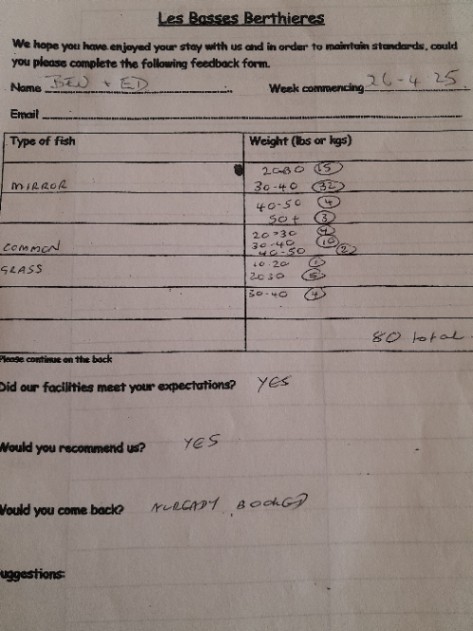 Les Basses Berthieres
We hope you have enjoyed your stay with us and in order to maintain standards, could
you please complete the following feedback form.
Name BEN + ED Week commencing 26-4 25
Email
Type of fish Weight (lbs or kgs)
20-30 15
MIRROR 30-40 32
40-50 4
50+ 3
20-30
COMMON 30-40 10
40-50 2
GRASS 10-20
2030
30-40 4
80 total
Please continue on the back
Did our facilities meet your expectations? YES
Would you recommend us? YES
Would you come back? ALREADY BOOKED
uggestions: